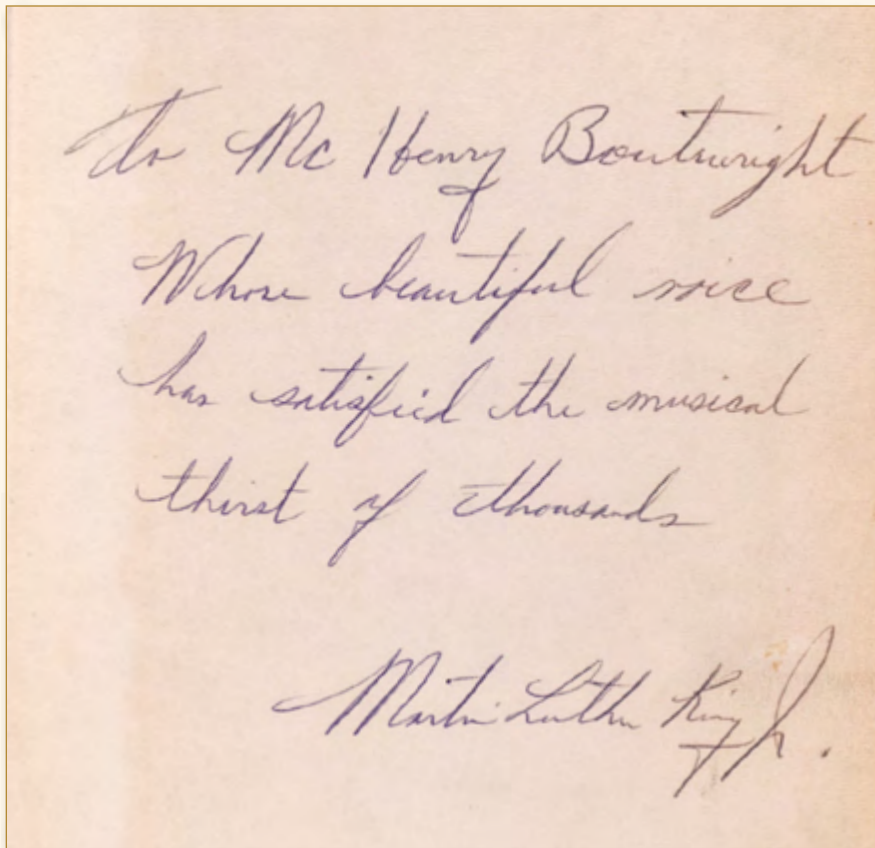 To Mc Henry Boutwright
Whose beautiful voice
has satisfied the musical
thirst of thousands
Martin Luther King Jr.